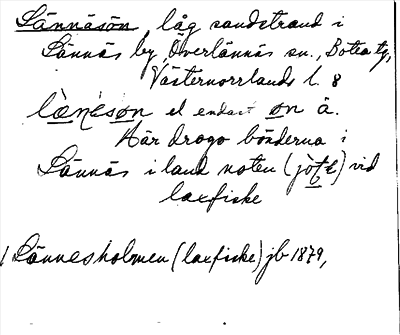 Lännäsön, låg sandstrand i
Lännäs by, Överlännäs sn., Botea tg,
Västernorrlands l. 8
lònesòn el endast òn ä.
Här drogo bönderna i
Lännäs i land noten (jòt) vid
laxfiske
Lännesholmen (laxfiske) jb 1879,